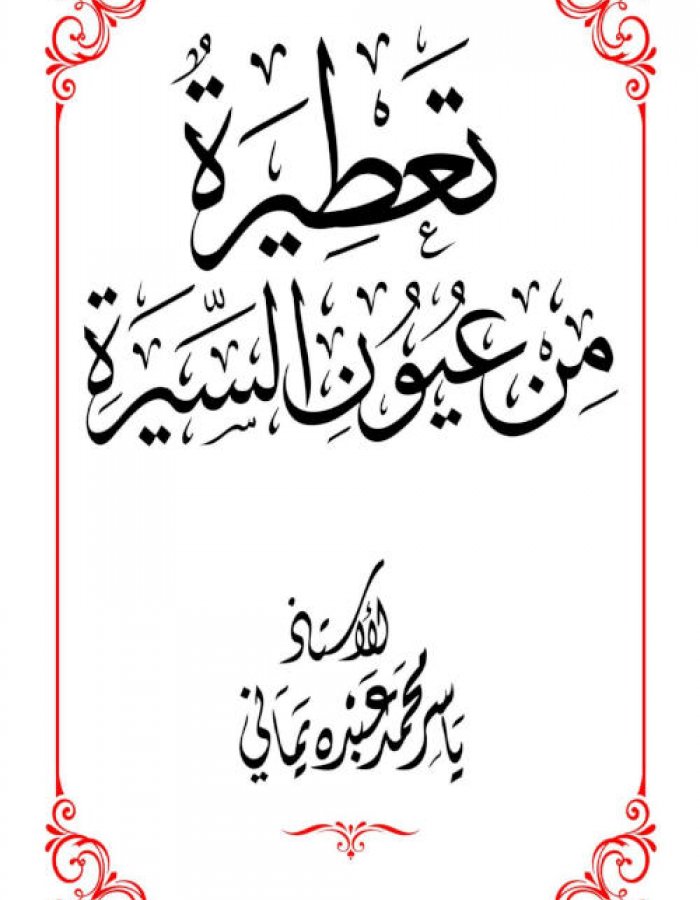 تَعْطِيرَةٌ
مِنْ عُيُونِ السِّيرَةِ
الأستاذ
ياسر محمد عبده يماني